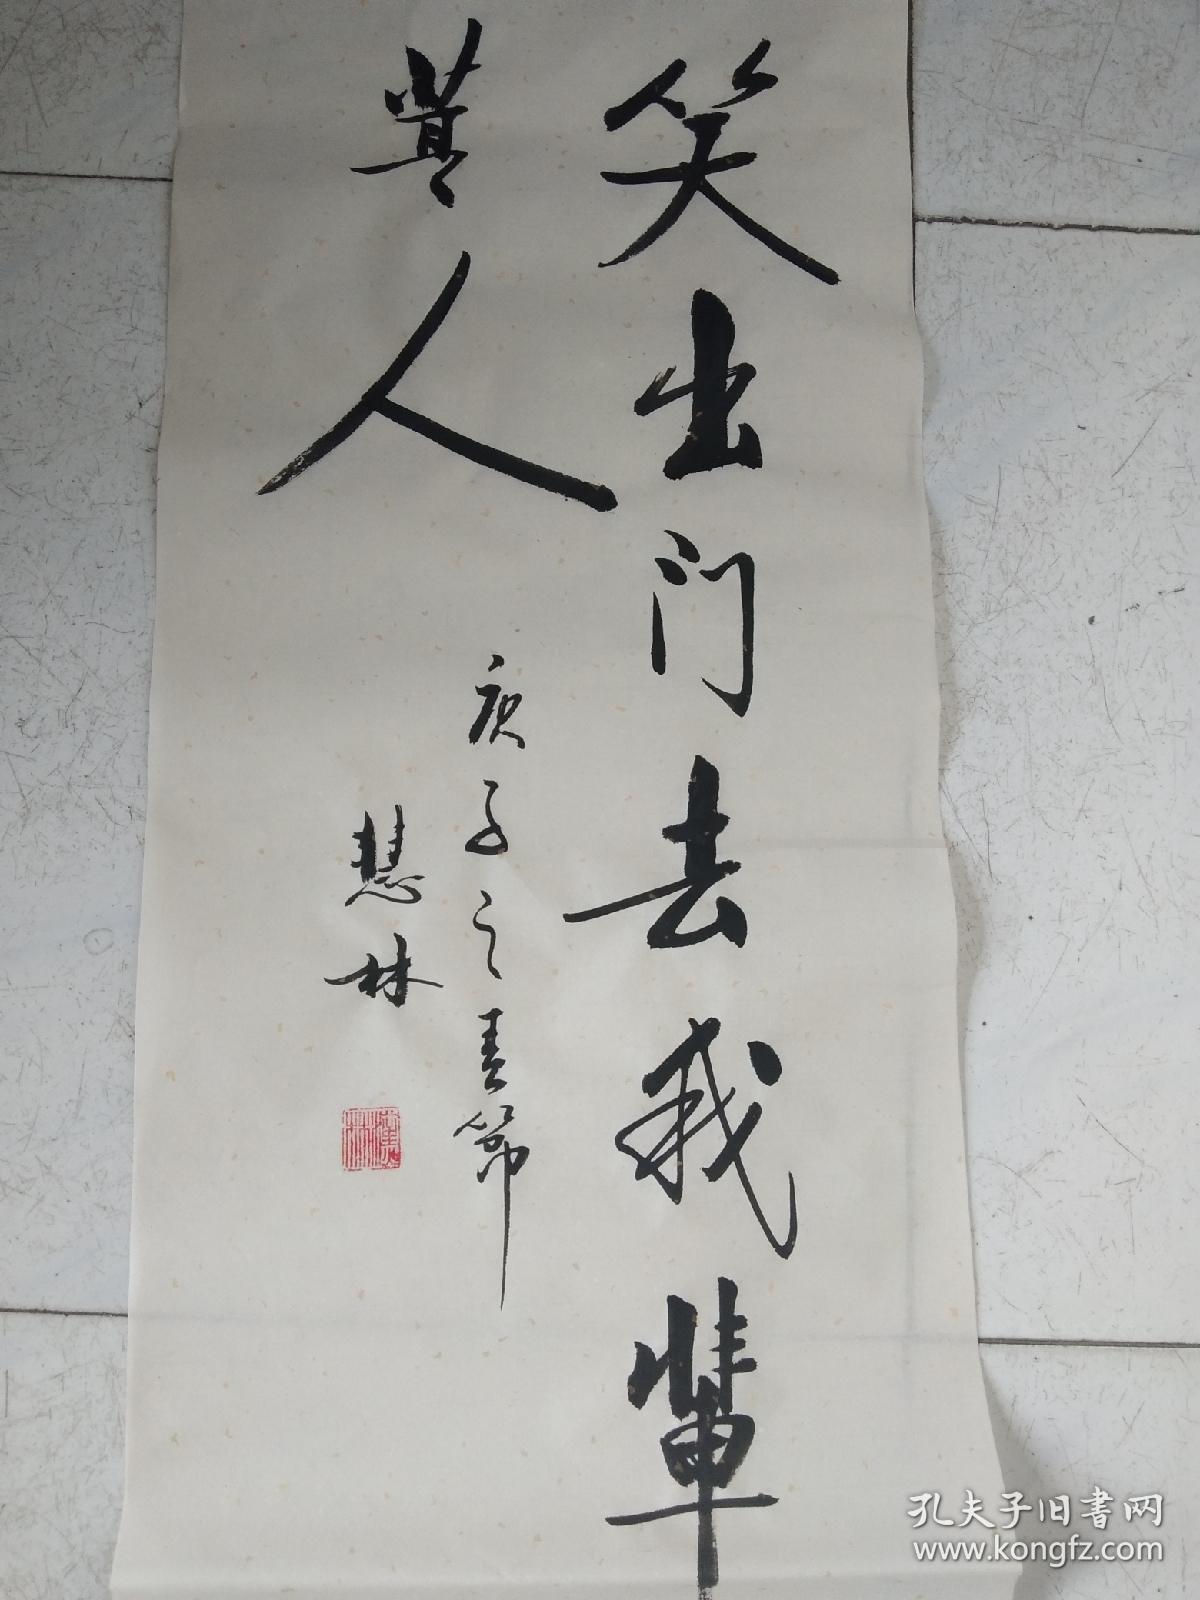 笑出门去我輩
蒿人
庚子之春節
慧林
孔夫子旧書网
www.kongfz.com